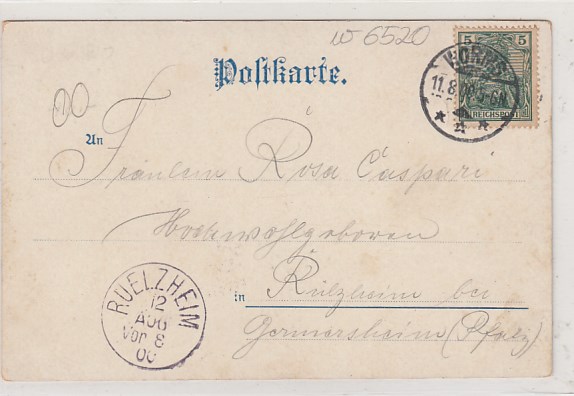 w 6520
Postkarte.
5 5
WORMS
11.8.00.5-6N.
REICHSPOST
00
An
Fräulein Rosa Caspari
Hochwohlgeboren
in Rülzheim bei
Germersheim (Pfalz)
RUELZHEIM
12
AUG
Vor 8
00